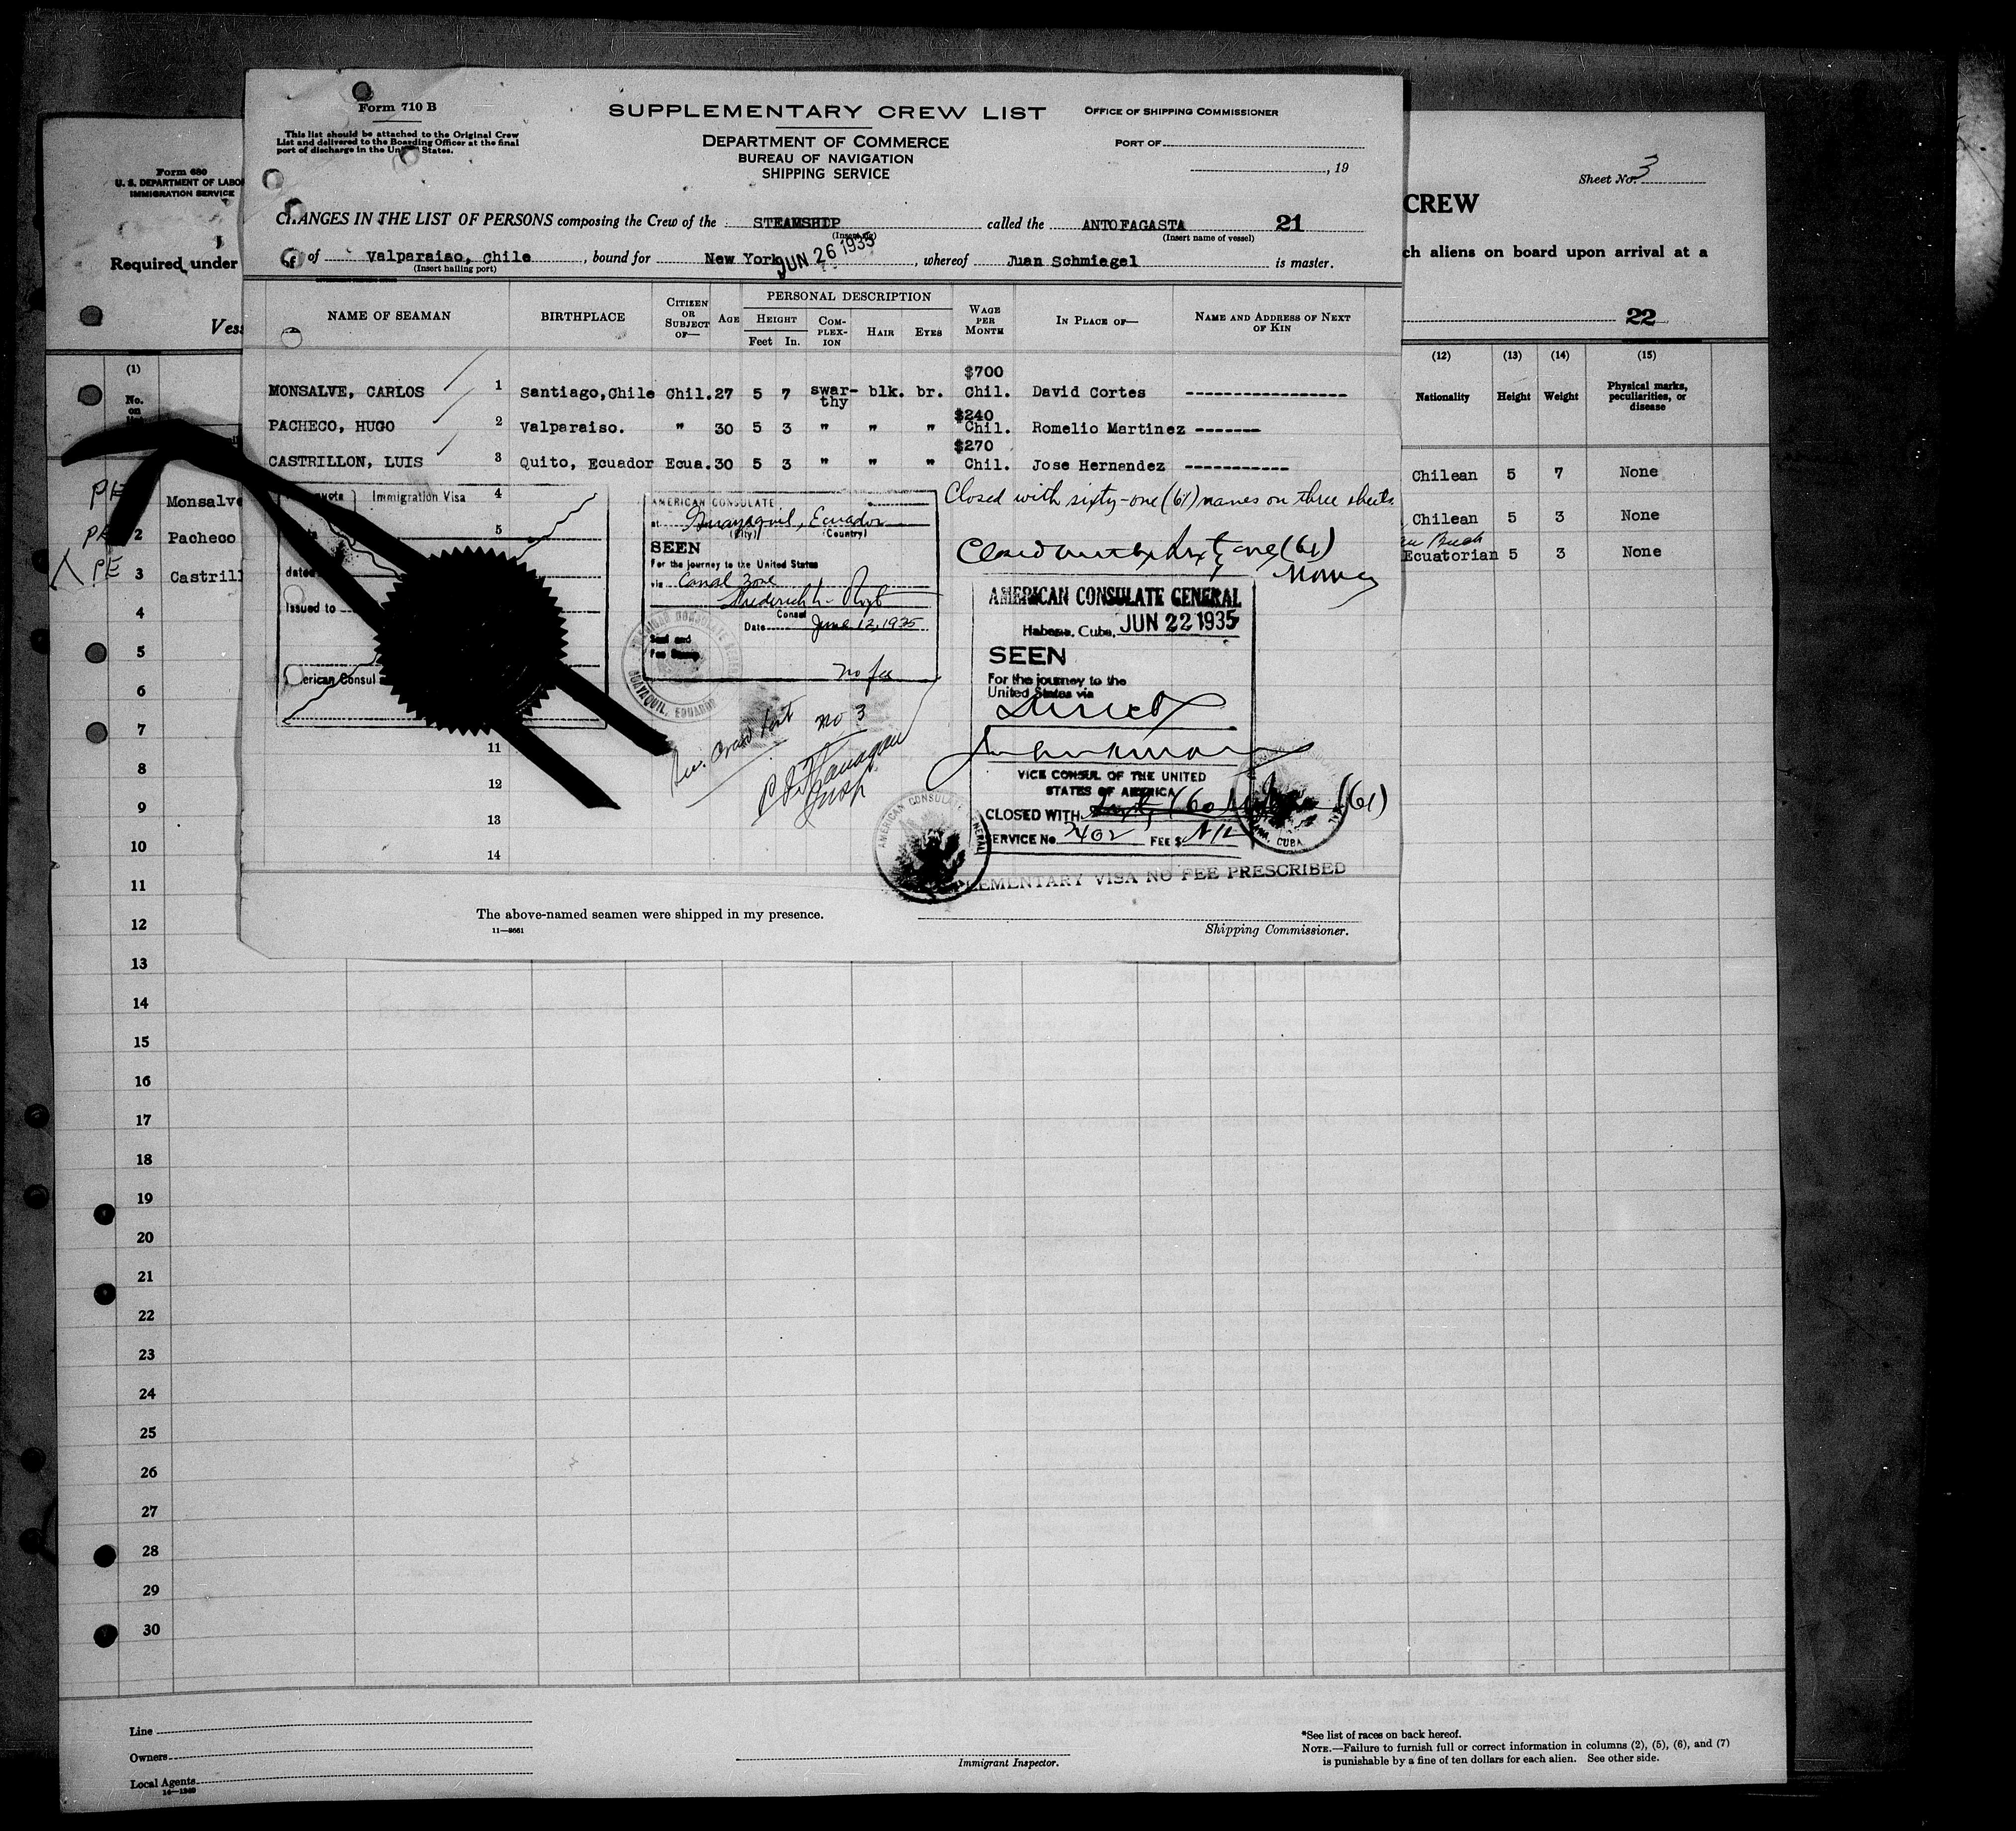 Form 710 B
This list should be attached to the Original Crew
List and delivered to the Boarding Officer at the final
port of discharge in the United States.
SUPPLEMENTARY CREW LIST
DEPARTMENT OF COMMERCE
BUREAU OF NAVIGATION
SHIPPING SERVICE
OFFICE OF SHIPPING COMMISSIONER
PORT OF
, 19
CHANGES IN THE LIST OF PERSONS composing the Crew of the STEAMSHIP called the ANTOFAGASTA 21
(Insert name of vessel)
of Valparaiso, Chile , bound for New York , whereof Juan Schmiegel is master.
(Insert hailing port)
JUN 26 1935
NAME OF SEAMAN BIRTHPLACE CITIZEN OR SUBJECT OF— AGE PERSONAL DESCRIPTION HEIGHT Feet In. COMPLEXION HAIR EYES WAGE PER MONTH IN PLACE OF— NAME AND ADDRESS OF NEXT OF KIN
$700
MONSALVE, CARLOS 1 Santiago,Chile Chil. 27 5 7 swarthy blk. br. Chil. David Cortes
$240
PACHECO, HUGO 2 Valparaiso. " 30 5 3 " " " Chil. Romelio Martinez
$270
CASTRILLON, LUIS 3 Quito, Ecuador Ecua. 30 5 3 " " " Chil. Jose Hernandez
4
5
11
12
13
14
Immigration Visa
dated
Issued to
American Consul
AMERICAN CONSULATE
at Guayaquil, Ecuador
(City) (Country)
SEEN
For the journey to the United States
via Canal Zone
Consul
Date June 12, 1935
Seal and
Fee Stamp
no fee
GUAYAQUIL, ECUADOR
no 3
Insp.
Closed with sixty-one (61) names on three sheets.
Closed with sixty one (61)
names
AMERICAN CONSULATE GENERAL
Habana, Cuba, JUN 22 1935
SEEN
For the journey to the
United States via
Direct
VICE CONSUL OF THE UNITED
STATES OF AMERICA
CLOSED WITH (61)
SERVICE No. 2402 FEE $ Nil
AMERICAN CONSULATE GENERAL
CUBA
EMENTARY VISA NO FEE PRESCRIBED
The above-named seamen were shipped in my presence.
11—8661
Shipping Commissioner.
Form 680
U. S. DEPARTMENT OF LABOR
IMMIGRATION SERVICE
Required under
Vess
Sheet No. 3
CREW
ch aliens on board upon arrival at a
22
(1) (12) (13) (14) (15)
No. on Nationality Height Weight Physical marks, peculiarities, or disease
Monsalve Chilean 5 7 None
2 Pacheco Chilean 5 3 None
PE 3 Castrill Ecuatorian 5 3 None
4
5
6
7
8
9
10
11
12
13
14
15
16
17
18
19
20
21
22
23
24
25
26
27
28
29
30
Line
Owners
Local Agents
Immigrant Inspector.
*See list of races on back hereof.
NOTE.—Failure to furnish full or correct information in columns (2), (5), (6), and (7)
is punishable by a fine of ten dollars for each alien. See other side.